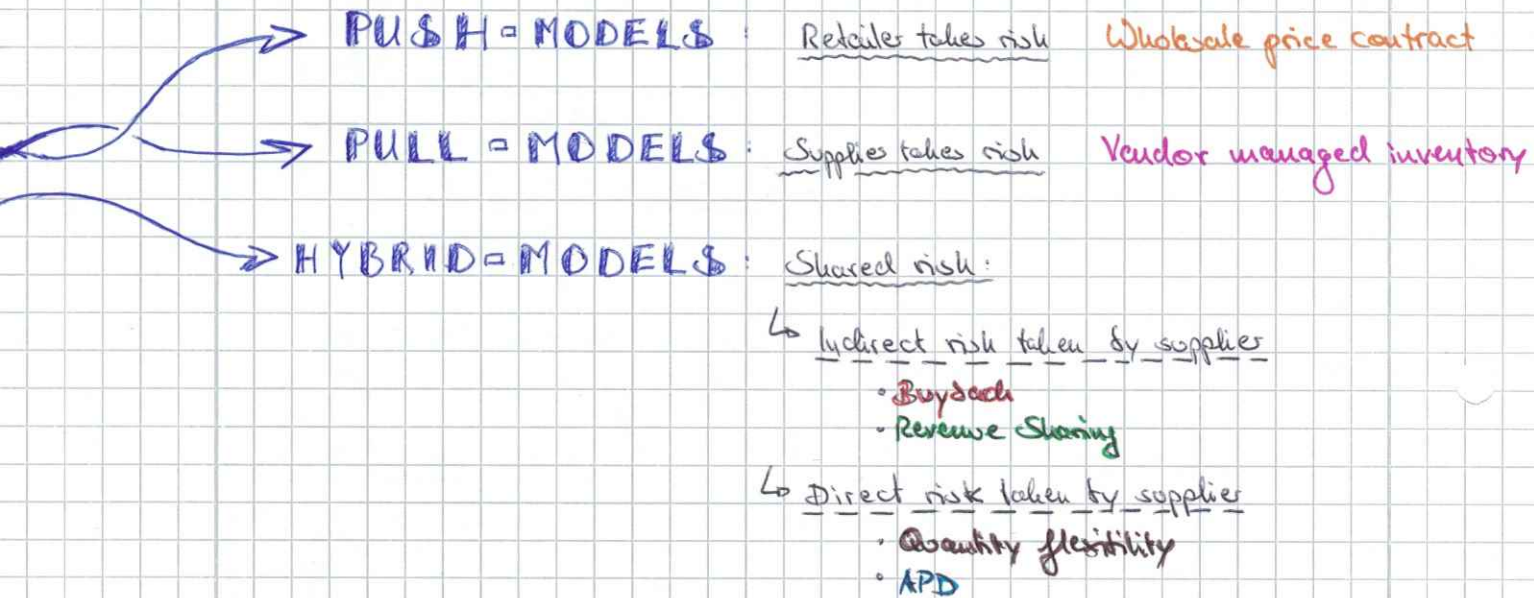 PUSH-MODELS: Retailer takes risk Wholesale price contract
PULL-MODELS: Supplier takes risk Vendor managed inventory
HYBRID-MODELS: Shared risk:
↳ Indirect risk taken by supplier
· Buyback
· Revenue Sharing
↳ Direct risk taken by supplier
· Quantity flexibility
· APD